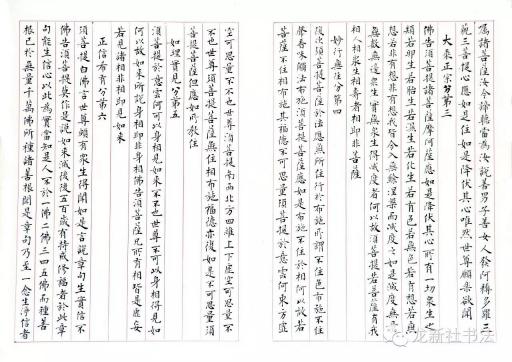 囑諸菩薩汝今諦聽當為汝說善男子善女人發阿耨多羅三
藐三菩提心應如是住如是降伏其心唯然世尊願樂欲聞
大乘正宗分第三
佛告須菩提諸菩薩摩訶薩應如是降伏其心所有一切眾生之
類若卵生若胎生若濕生若化生若有色若無色若有想若無
想若非有想非無想我皆令入無餘涅槃而滅度之如是滅度無量
無數無邊眾生實無眾生得滅度者何以故須菩提若菩薩有我
相人相眾生相壽者相即非菩薩
妙行無住分第四
復次須菩提菩薩於法應無所住行於布施所謂不住色布施不住
聲香味觸法布施須菩提菩薩應如是布施不住於相何以故若
菩薩不住相布施其福德不可思量須菩提於意云何東方虛
空可思量不不也世尊須菩提南西北方四維上下虛空可思量不
不也世尊須菩提菩薩無住相布施福德亦復如是不可思量須
菩提菩薩但應如所教住
如理實見分第五
須菩提於意云何可以身相見如來不不也世尊不可以身相得見如
何以故如來所說身相即非身相佛告須菩提凡所有相皆是虛妄
若見諸相非相即見如來
正信希有分第六
須菩提白佛言世尊頗有眾生得聞如是言說章句生實信不
佛告須菩提莫作是說如來滅後後五百歲有持戒修福者於此章
句能生信心以此為實當知是人不於一佛二佛三四五佛而種善
根已於無量千萬佛所種諸善根聞是章句乃至一念生淨信者
龙新社书法